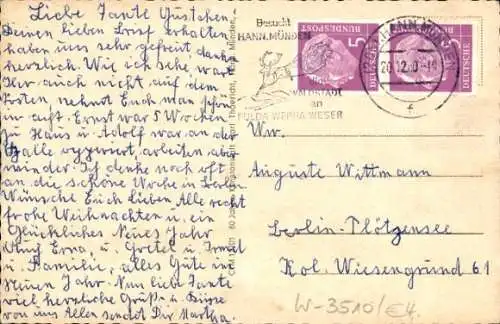 Liebe Tante Gustchen,
Deinen lieben Brief erhalten
haben uns sehr gefreit danke
herzlich. Wie ich sehe war
Ihr auch nicht auf dem
nehmt Euch man schön
in acht. Ernst war 5 Wochen
zu Haus u. Adolf war an der
Galle operiert, arbeiten aber
wieder. Ich denke noch oft
an die schöne Woche in Berlin.
Wünsche Euch lieben Alle recht
frohe Weihnachten u. ein
Glückliches Neues Jahr
Erna, u. Gretel u. Irmel
u. Familie, alles Gute im
Neuen Jahr. Nun liebe Tante
viel herzliche Grüße u. Küsse
von uns Allen sendet Dir Martha.
Besucht
HANN. MÜNDEN
WALDSTADT
an
FULDA WERRA WESER
DEUTSCHE BUNDESPOST 5
DEUTSCHE BUNDESPOST 5
HANN. MÜNDEN
20.12.
f
Ww.
Auguste Wittmann
Berlin-Plötzensee
Kol. Wiesengrund 61
W-3510/€4